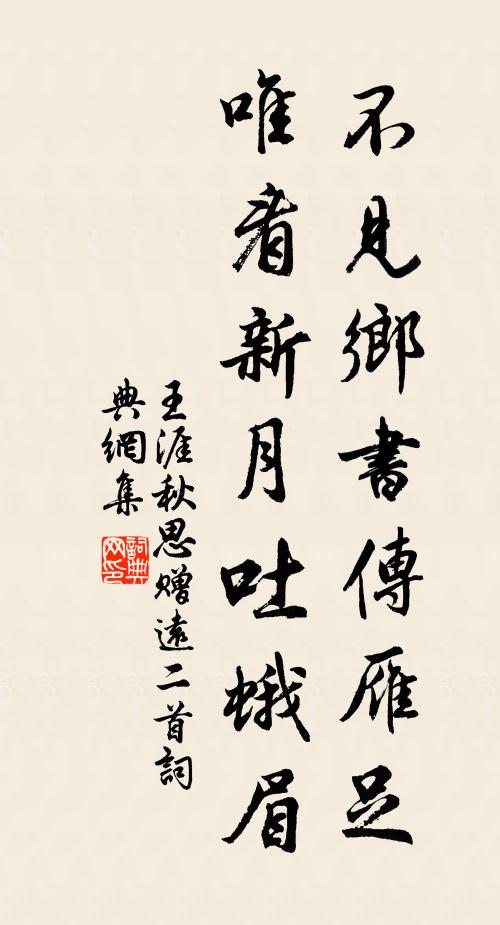 不見鄉書傳雁足
唯看新月吐蛾眉
王涯秋思贈遠二首詞
典網集
詞典
网印